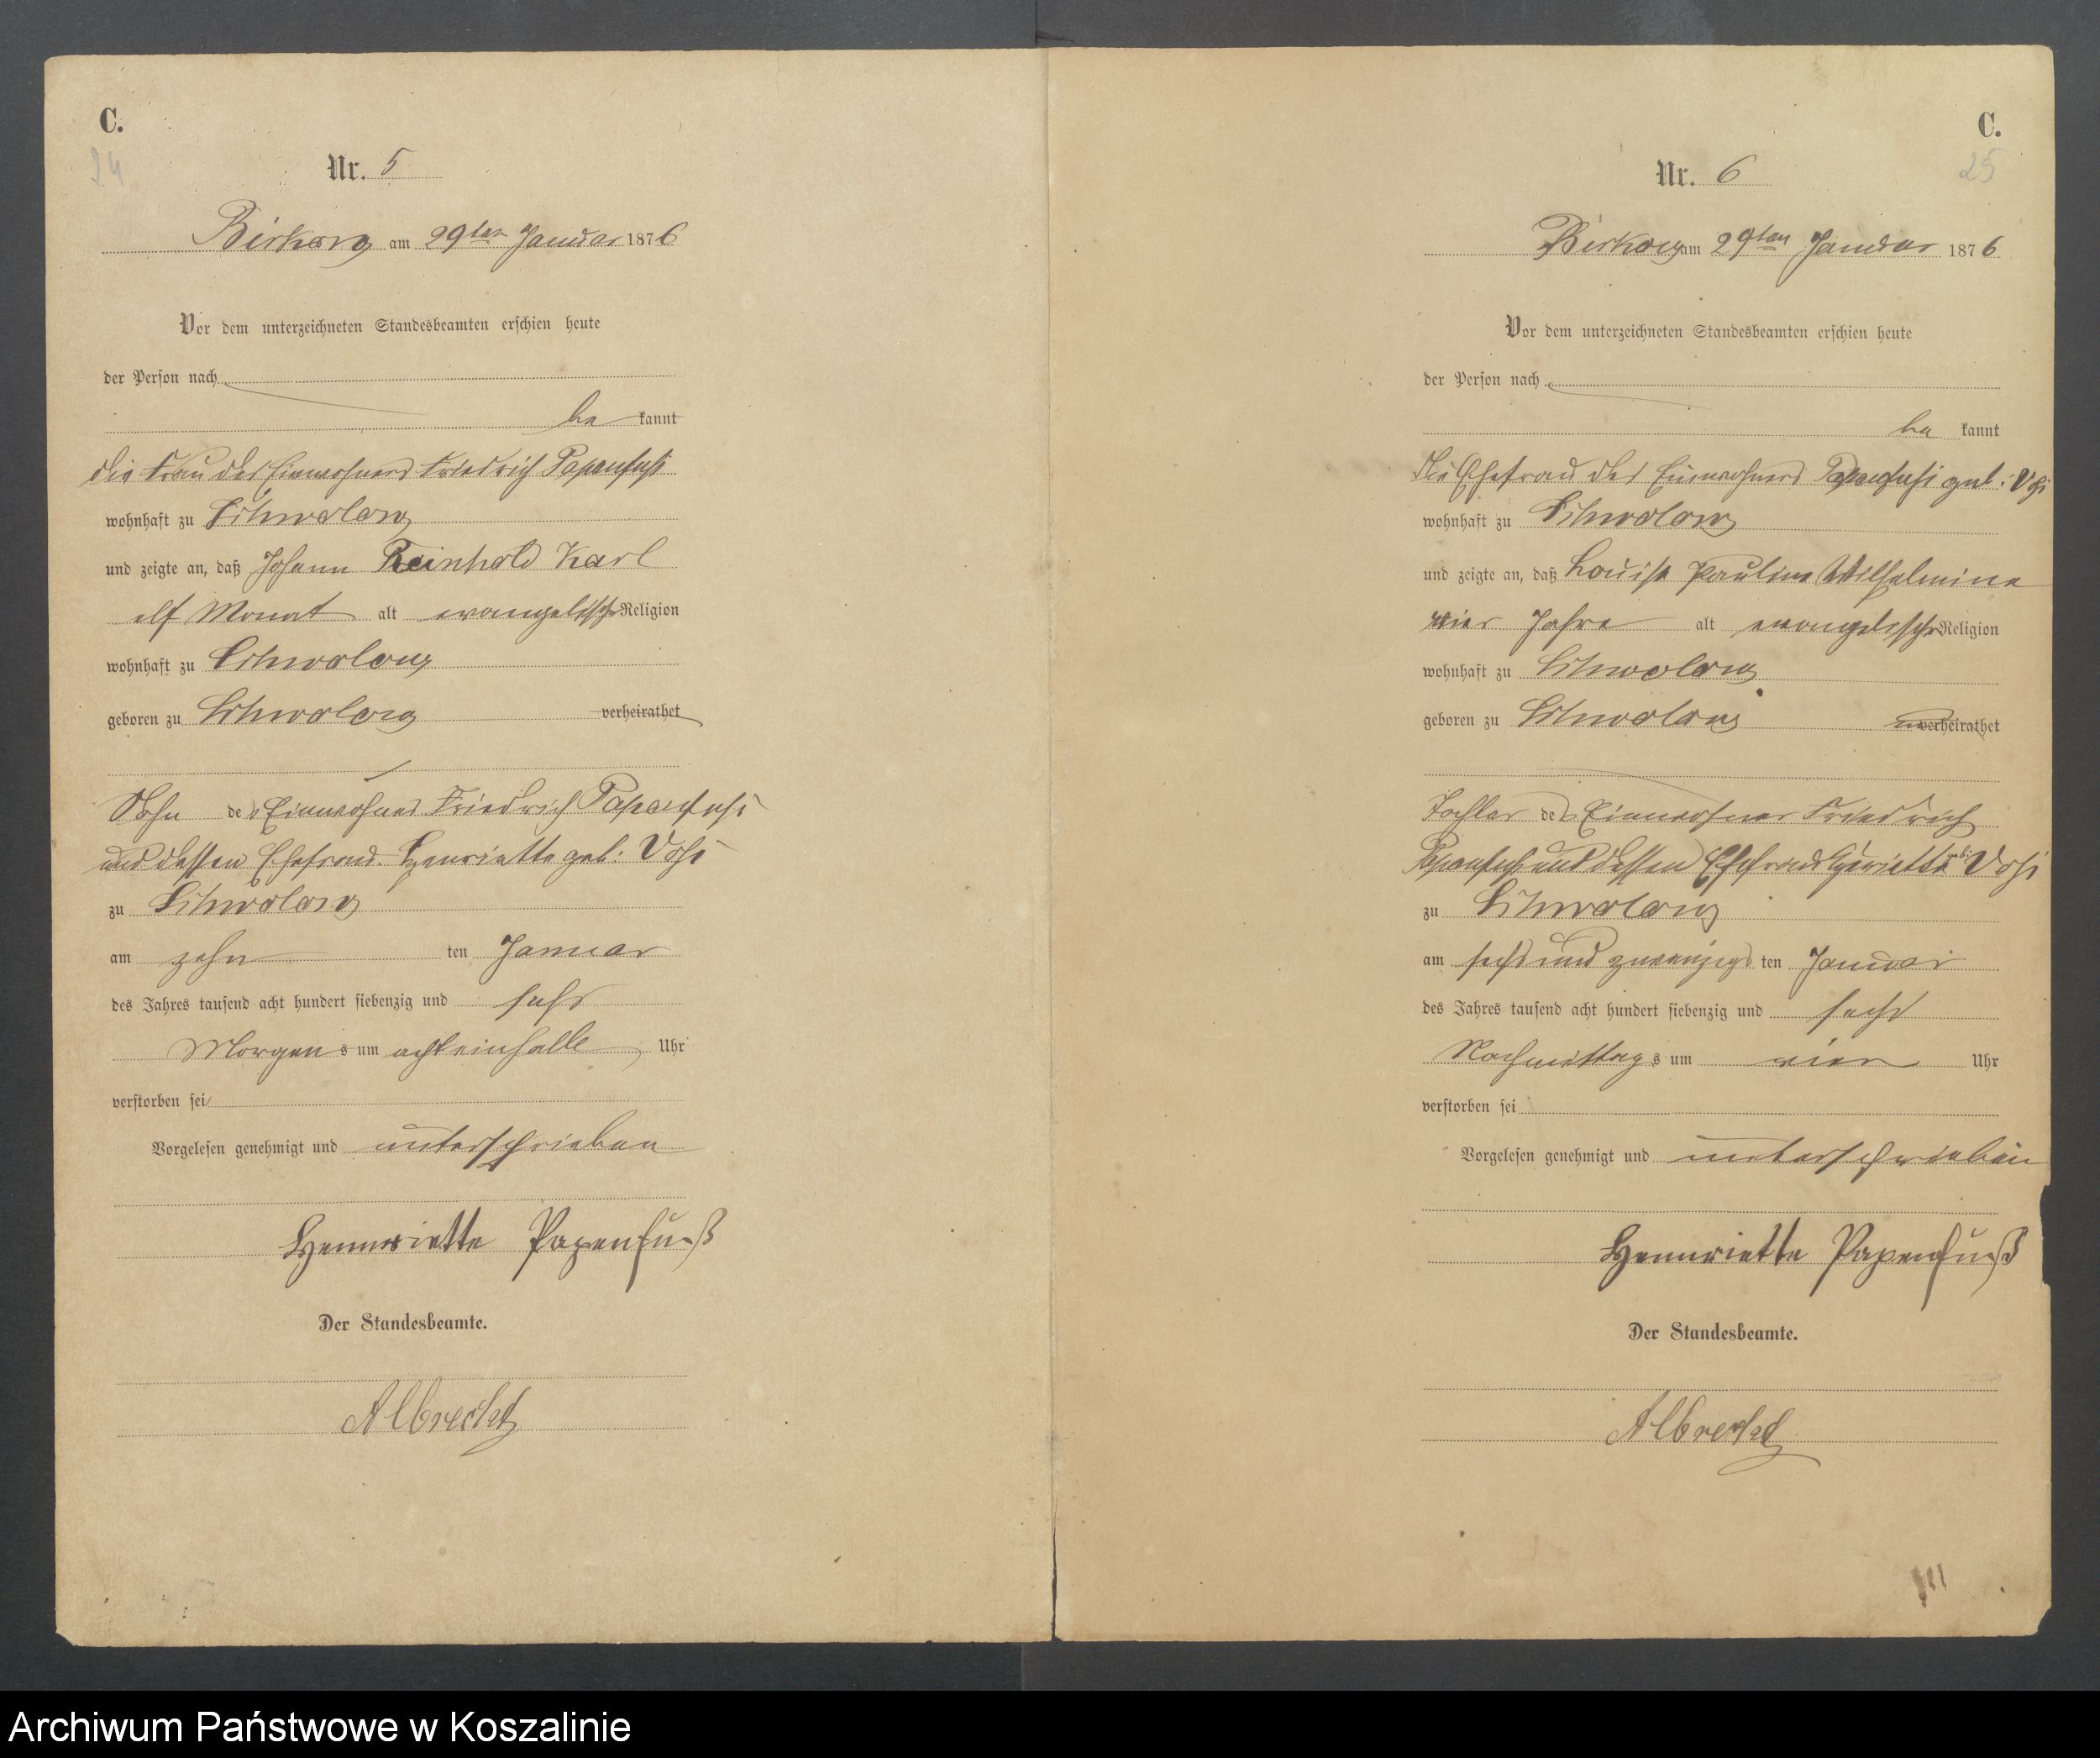 C.
24
Nr. 5
Birkow am 29ten Januar 1876
Vor dem unterzeichneten Standesbeamten erschien heute
der Person nach
be kannt
die Frau des Einwohners Friedrich Papenfuhs
wohnhaft zu Schwolow
und zeigte an, daß Johann Reinhold Karl
elf Monat alt evangelischer Religion
wohnhaft zu Schwolow
geboren zu Schwolow verheirathet
Sohn des Einwohner Friedrich Papenfuhs
und dessen Ehefrau Henriette geb: Vohs
zu Schwolow
am zehn ten Januar
des Jahres tausend acht hundert siebenzig und sechs
Morgens um acht einhalb Uhr
verstorben sei
Vorgelesen genehmigt und unterschrieben
Hennriette Papenfuß
Der Standesbeamte.
Albrecht
C.
25
Nr. 6
Birkow am 29ten Januar 1876
Vor dem unterzeichneten Standesbeamten erschien heute
der Person nach
be kannt
die Ehefrau des Einwohners Papenfuhs geb: Vohs
wohnhaft zu Schwolow
und zeigte an, daß Louise Pauline Wilhelmine
vier Jahre alt evangelischer Religion
wohnhaft zu Schwolow
geboren zu Schwolow unverheirathet
Tochter des Einwohner Friedrich
Papenfuhs und dessen Ehefrau Henriette geb: Vohs
zu Schwolow
am sechs und zwanzigs ten Januar
des Jahres tausend acht hundert siebenzig und sechs
Nachmittags um vier Uhr
verstorben sei
Vorgelesen genehmigt und unterschrieben
Hennriette Papenfuß
Der Standesbeamte.
Albrecht
Archiwum Państwowe w Koszalinie